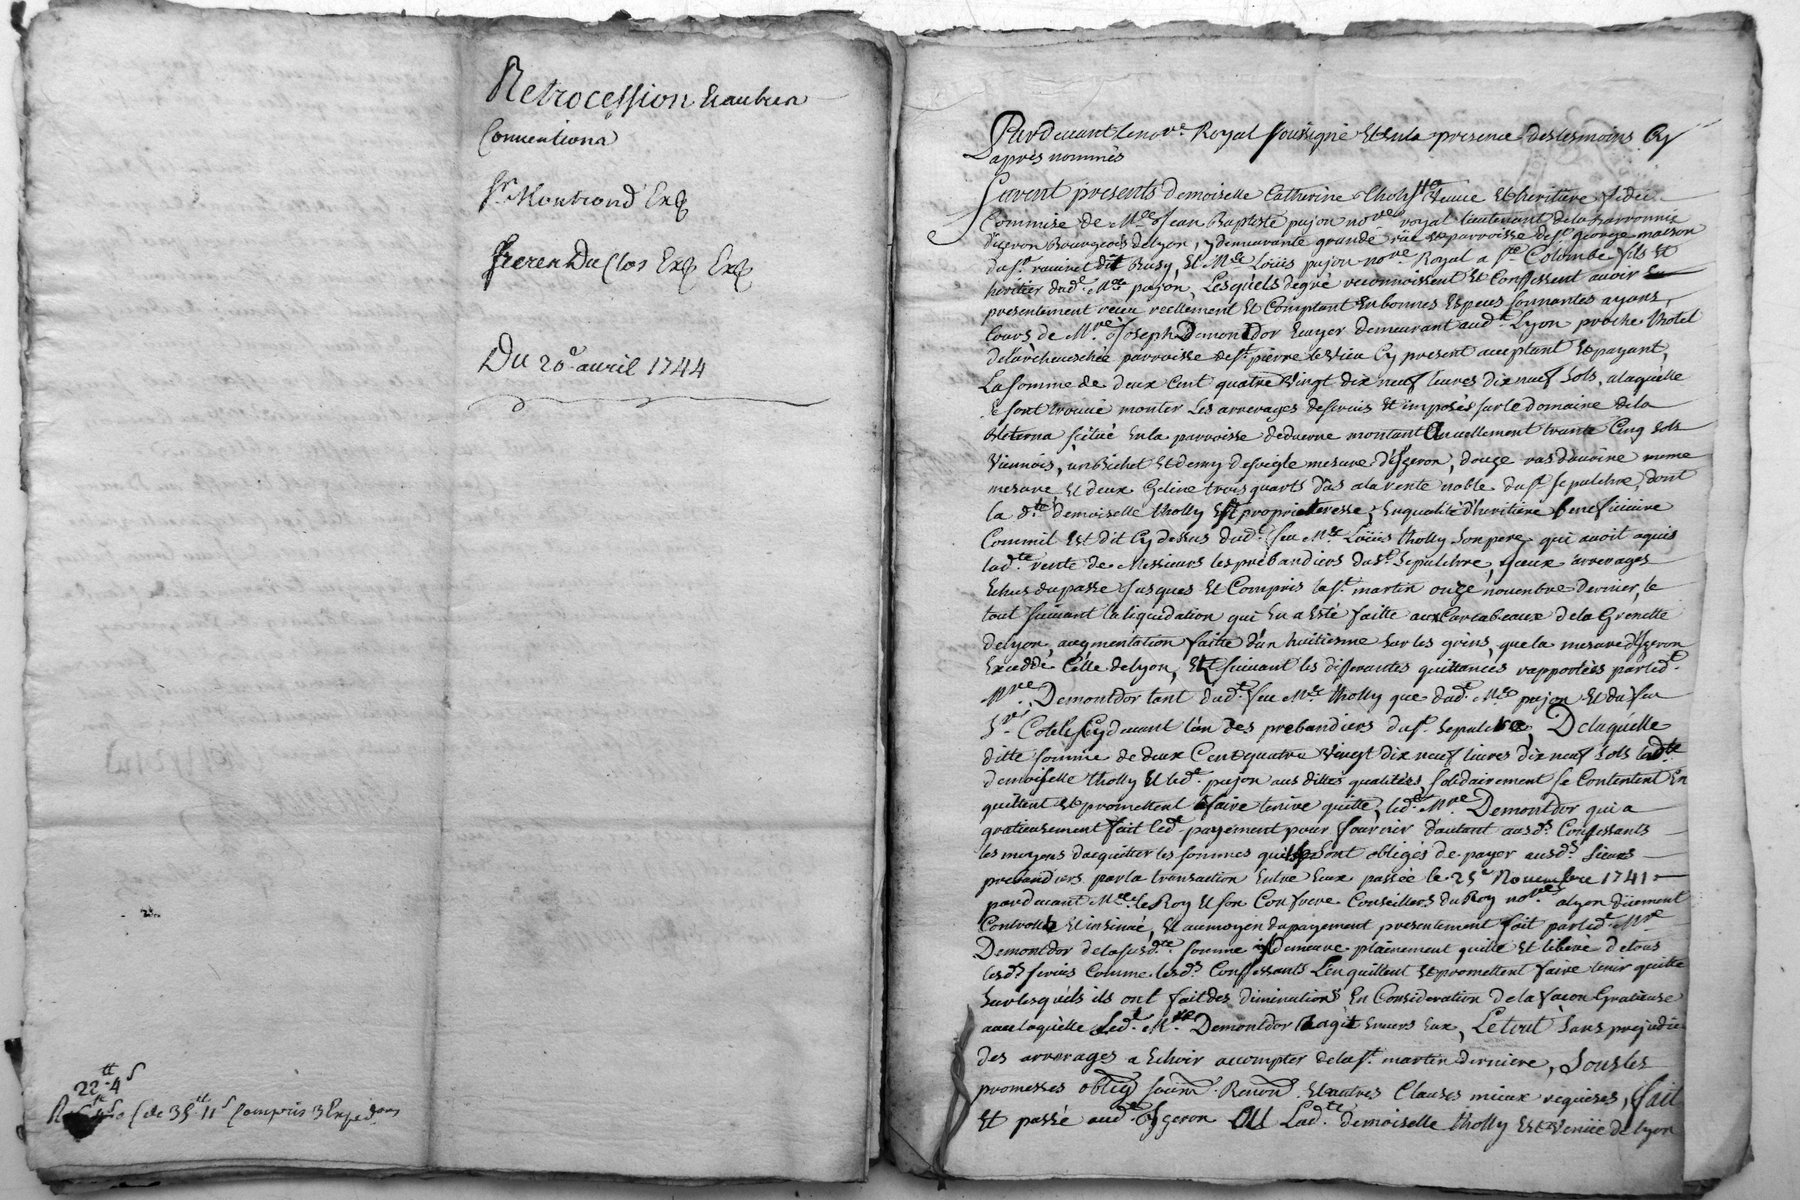 Retrocession Et autres
Conventions
Sr. Montrond Exp
freres Duclos Exp Exp
Du 20e. avril 1744
22tt-4s
de 35tt 11s Compris 3 Expedons
Pardevant le nore. Royal soussigné Et En la presence des tesmoins Cy
apres nommés
furent presents demoiselle Catherine tholly veuve Et heritiere fidei
Commise de Mre Jean Baptiste pujon nore royal lieutenant de la barronnie
d'izeron Bourgeois de lyon, y demeurante grande rüe Et parroisse de st. george maison
du sr. ravinet dit Busy, Et Mre Loüis pujon nore. Royal a ste. Colombe fils Et
heritier dud. Mre pujon, Lesquels de gré reconnoissent Et Confessent avoir
presentement receu reellement Et Comptant En bonnes Especes sonnantes ayans
Cours de Mre. Joseph Demontdor Ecuyer demeurant aud. Lyon proche l'hotel
de l'archeveschée parroisse de st. pierre le vieu Cy present aceptant Et payant,
La somme de deux Cent quatre vingt dix neuf livres dix neuf sols, a laquelle
se sont trouvé monter les arrerages de servis Et imposés sur le domaine de la
scitué En la parroisse de montant annuellement trante Cinq sols
Viennois, un Bichet Et demy de seigle mesure d'izeron, douze ras d'avoine meme
mesure, Et deux geline trois quarts d'as a la rente noble du st. sepulchre, dont
la dte. demoiselle tholly Est proprieteresse, En qualité d'heritiere beneficiaire
Commil Est dit Cy dessus dud. feu Mre Loüis tholly son pere, qui avoit aquis
lad.te rente de Messieurs les prebandiers du st. sepulchre, yceux arrerages
Echus du passé jusques Et Compris la st. martin onze novembre dernier, le
tout suivant la liquidation qui En a Esté faitte aux Carcabeaux de la Grenette
de lyon, augmentation faitte d'un huitieme sur les grains, que la mesure d'izeron
Excedde Celle de lyon, Et suivant les differantes quittances rapportées par led.t
Mre. Demontdor tant dud.t feu Mre tholly que dud.t Mre pujon Et du feu
Sr. Cy devant l'un des prebandiers du st. sepulcre, De laquelle
ditte somme de deux Cent quatre vingt dix neuf livres dix neuf sols ladte
demoiselle tholly Et led.t pujon aus dittes qualités, solidairement se Contentent En
quittent Et promettent faire tenire quitte, led.t Mre Demontdor qui a
gratieusement fait led.t payement pour fournir d'autant ausds Confessants
les moyens d'acquitter les sommes quils sont obligés de payer ausds. sieurs
prebandiers par la transaction Entre Eux passée le 25e Novembre 1741
pardevant Mre le Roy Et son Confrere Conseillers du Roy nores a lyon düement
Controllé Et insinué, Et au moyen du payement presentement fait par led.t Mre
Demontdor de la susdte somme il demeure plainement quitte Et liberé de tous
lesds. servis Comme lesds. Confessants L'en quittent Et promettent faire tenir quitte
sur lesquels ils ont fait des diminutions En Consideration de la facon Gratieuse
avec laquelle led.t Mre Demontdor agit Envers Eux, Le tout sans prejudice
des arrerages a Echoir a compter de la st. martin derniere, Sous les
promesses oblig soum. Renon. Et autres Clauses mieux requises, fait
Et passé aud. yzeron OU Lad.te demoiselle tholly Est venüe de lyon